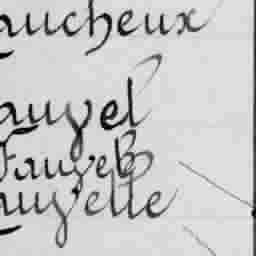 aucheux
auvel
Fauvel
auvelle